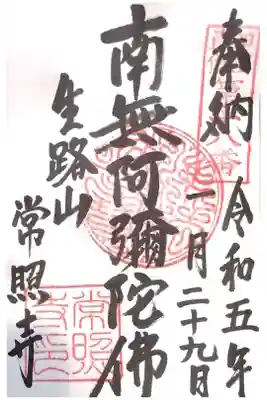 奉納
令和五年
一月二十九日
南無阿彌陀佛
生路山
常照寺